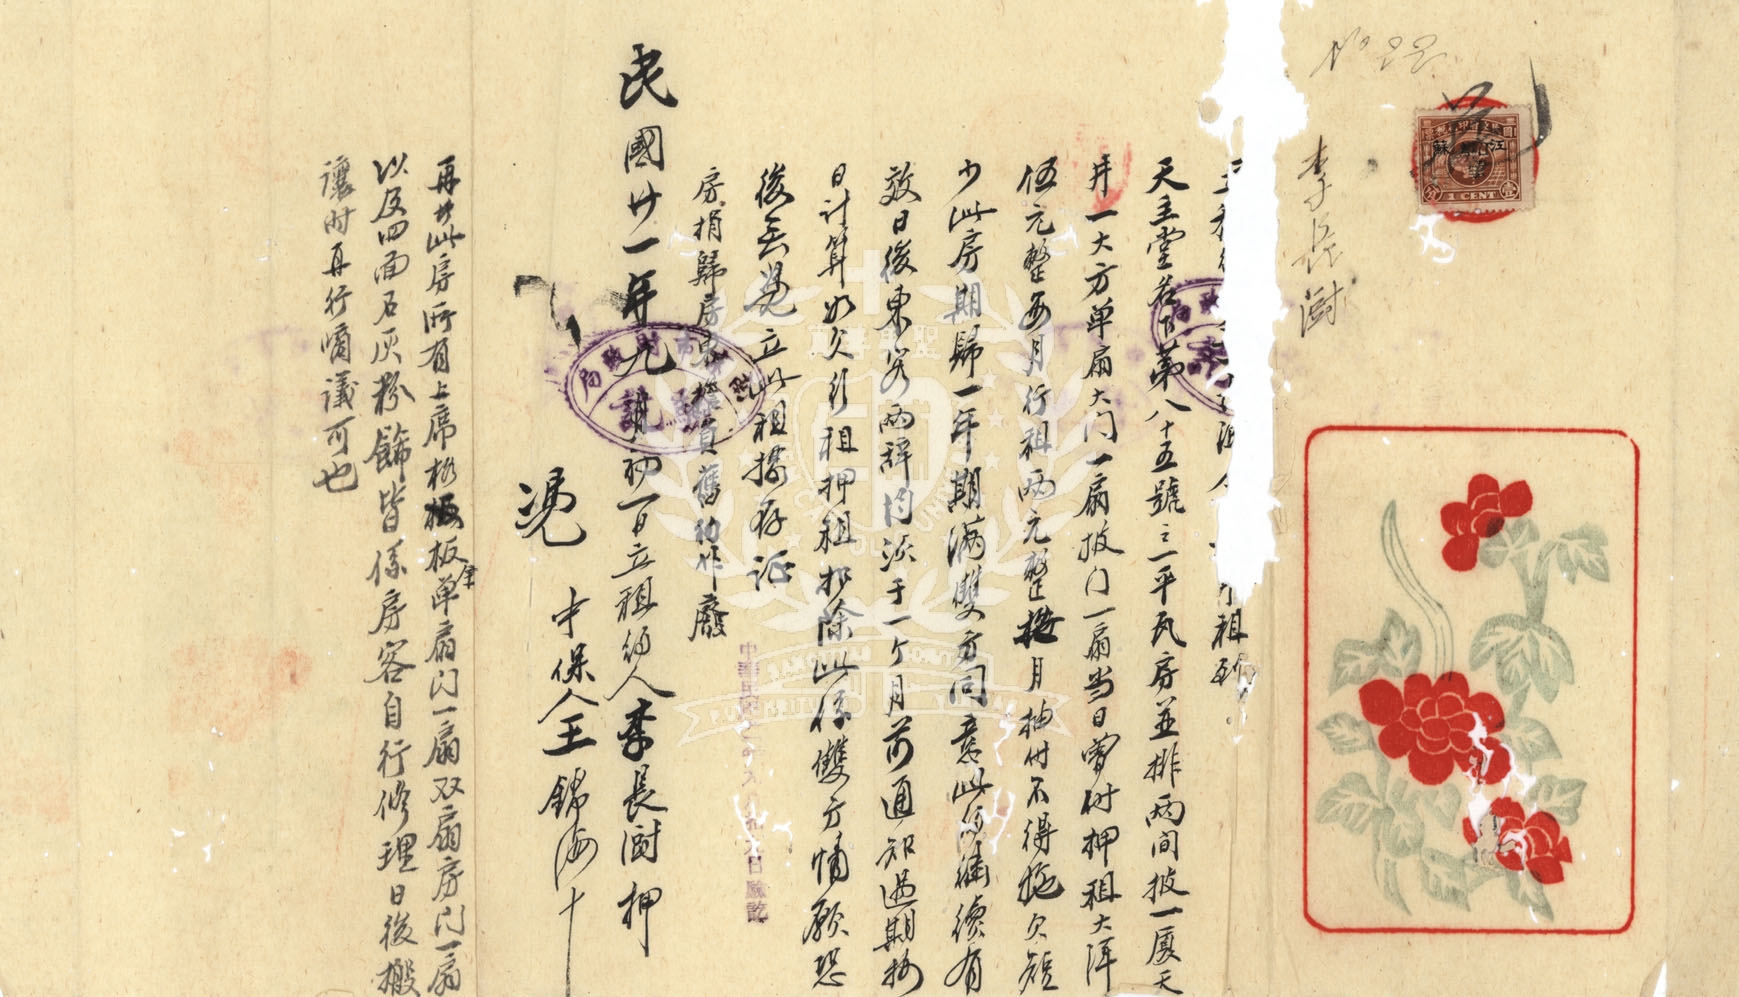 No 22
李長澍
江蘇
1 CENT
租到
天主堂名下第八十五號三一平瓦房並排兩间披一廈天
井一大方单扇大门一扇披门一扇当日曾付押租大洋
伍元整每月行租兩元整按月抽付不得拖欠短
少此房期歸一年期满雙方同意此约继續有
效日後東客兩辞均须于一个月前通知過期按
日计算如欠行租押租扣除此係雙方情願恐
後無凴立此租據存証
房捐歸房東擔負舊约作廢
民國廿一年九月初一日立租约人李長澍押
凴 中保人王錦海十
再此房所有上席板板单扇门一扇双扇房门一扇
以及四面石灰粉篩皆係房客自行修理日後搬
讓时再行情議可也
財政局
驗訖